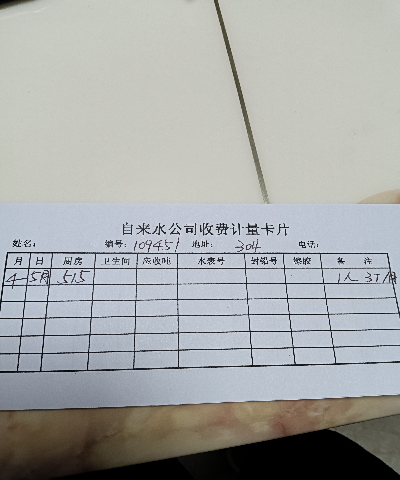 自来水公司收费计量卡片
姓名： 编号：109451 地址：304 电话：
月 日 厨房 卫生间 应收吨 水表号 封铅号 塑胶 备 注
4-5月 515 1人 3T/月